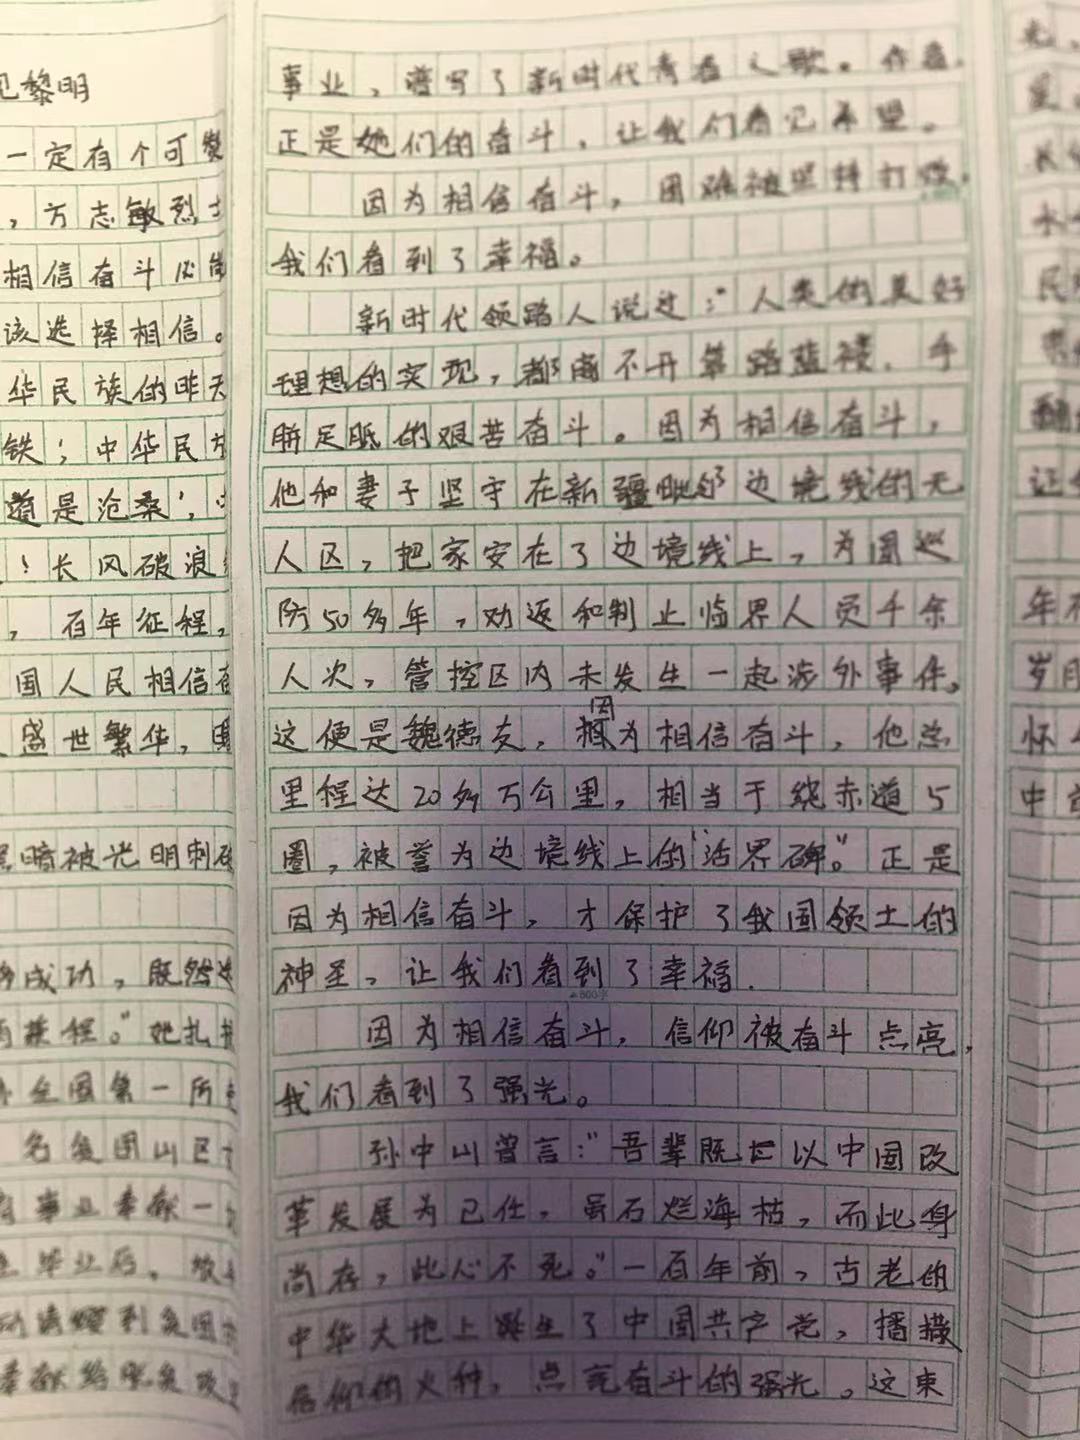 见黎明
一定有个可赞
，方志敏烈士
相信奋斗必能
该选择相信。
华民族的昨天
铁；中华民族
道是沧桑'，
！长风破浪
，百年征程，
国人民相信奋
盛世繁华，
黑暗被光明刺破
成功，既然选
兼程。"她扎根
全国第一所
名贫困山区
事业奉献一
毕业后，
到贫困
奉献给脱贫攻
事业，谱写了新时代青春之歌。
正是她们的奋斗，让我们看见希望。
因为相信奋斗，困难被坚持打败，
我们看到了幸福。
新时代领路人说过："人类的美好
理想的实现，都离不开筚路蓝褛，手
胼足胝的艰苦奋斗。因为相信奋斗，
他和妻子坚守在新疆毗邻边境线的无
人区，把家安在了边境线上，为国巡
防50多年，劝返和制止临界人员千余
人次，管控区内未发生一起涉外事件。
这便是魏德友，因为相信奋斗，他总
里程达20多万公里，相当于绕赤道5
圈，被誉为边境线上的"活界碑。"正是
因为相信奋斗，才保护了我国领土的
神圣，让我们看到了幸福.
▲800字
因为相信奋斗，信仰被奋斗点亮，
我们看到了强光。
孙中山曾言："吾辈既已以中国改
革发展为己任，虽石烂海枯，而此身
尚存，此心不死。"一百年前，古老的
中华大地上诞生了中国共产党，播撒
信仰的火种，点亮奋斗的强光。这束
光，
星
长
水
民
翻
证
年
岁月
怀
中